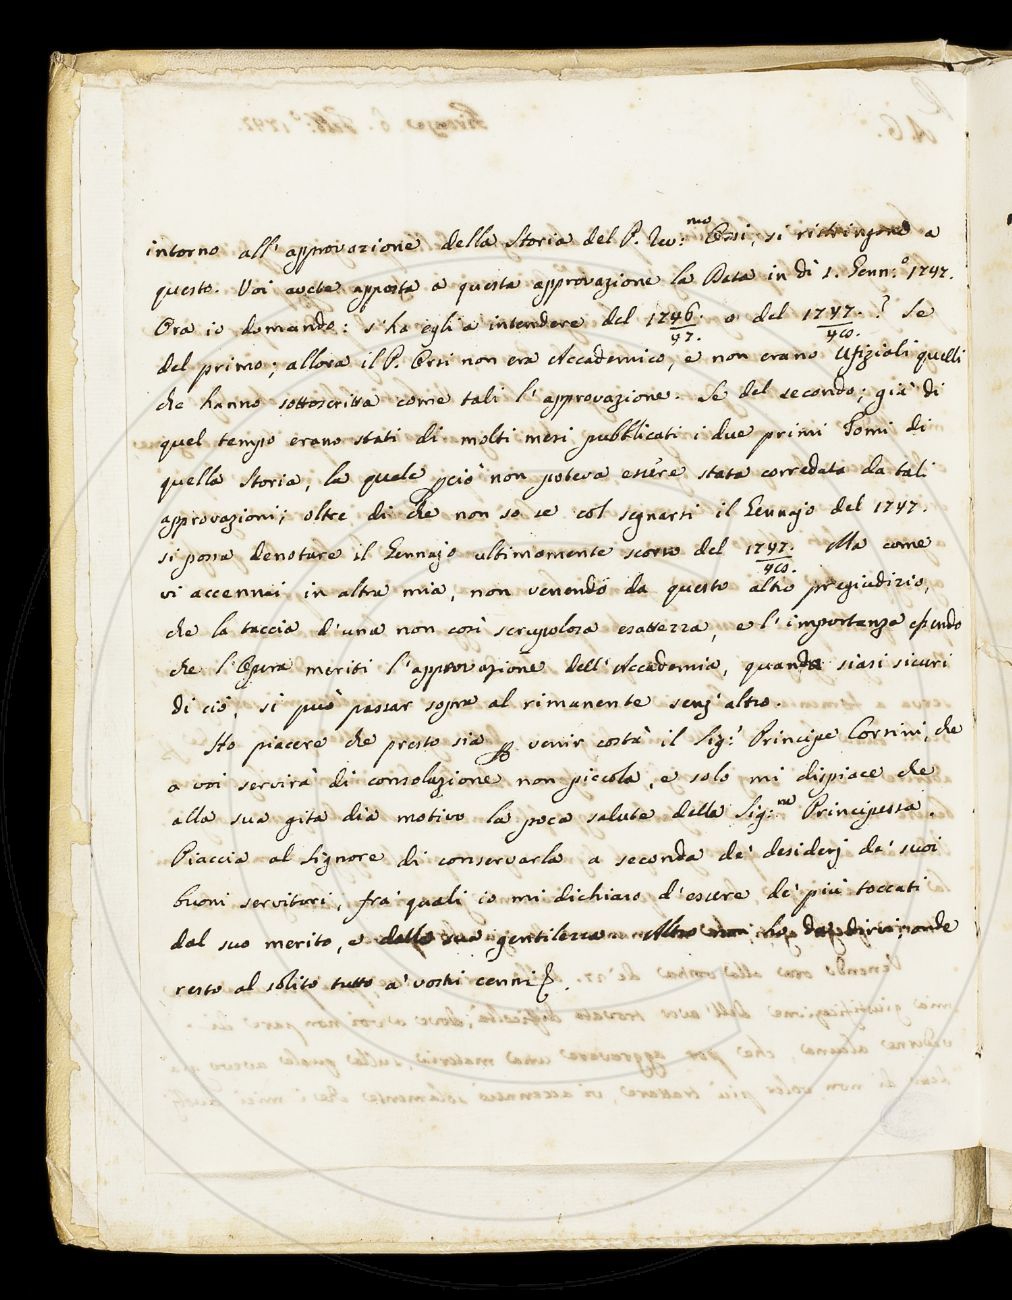 intorno all' approvazione della Storia del P. Rev:mo Orsi, si ristringono a
questo. Voi avete apposta a questa approvazione la Data in dì 1. Genn:o 1747.
Ora io domando: s'ha egli a intendere del 1746/47. o del 1747/48.? Se
del primo; allora il P. Orsi non era Accademico, e non erano Ufiziali quelli
che hanno sottoscritta come tali l'approvazione. Se del secondo; già di
quel tempo erano stati di molti mesi pubblicati i due primi Tomi di
quella Storia, la quale pciò non poteva essere stata corredata da tali
approvazioni; oltre di che non so se col segnarsi il Gennajo del 1747.
si possa denotare il Gennajo ultimamente scorso del 1747/48. Ma come
vi accennai in altra mia, non venendo da questo altro pregiudizio,
che la taccia d'una non così scrupolosa esattezza, e l'importanza essendo
che l'Opera meriti l'approvazione dell'Accademia, quando siasi sicuri
di ciò, si può passar sopra al rimanente senz'altro.
Ho piacere che presto sia p venir costà il Sig:r Principe Corsini, che
a voi servirà di consolazione non piccola, e solo mi dispiace che
alla sua gita dia motivo la poca salute della Sig:ra Principessa.
Piaccia al Signore di conservarla a seconda de' desiderj de' suoi
buoni servitori, fra' quali io mi dichiaro d'essere de' più toccati
dal suo merito, e dalla sua gentilezza. Altro non ho da dirvi; onde
resto al solito tutto a' vostri cenni.